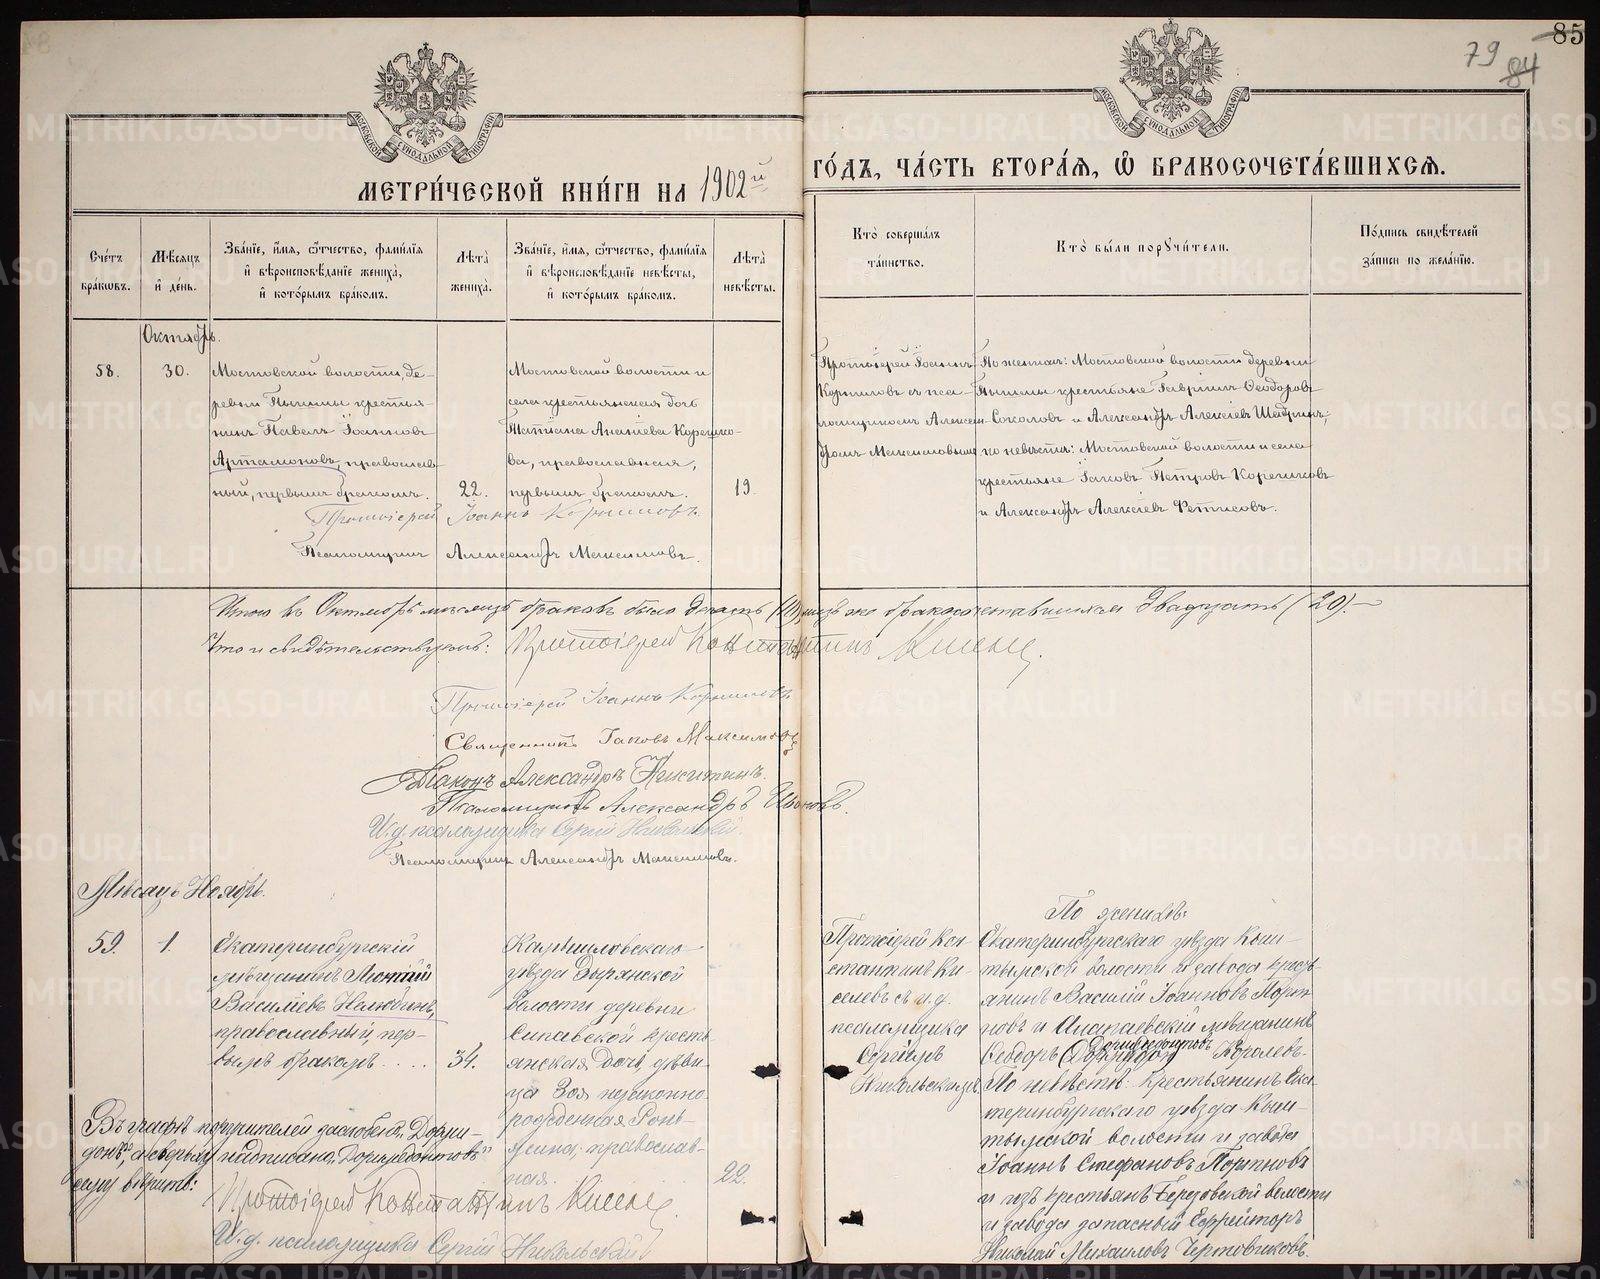 85
79
84
МОСКОВСКОЙ СѴНОДАЛЬНОЙ ТИПОГРАФІИ
МОСКОВСКОЙ СѴНОДАЛЬНОЙ ТИПОГРАФІИ
МЕТРИ́ЧЕСКОЙ КНИ́ГИ НА 1902й ГО́ДЪ, ЧА́СТЬ ВТОРА́Я, Ѽ БРАКОСОЧЕТА́ВШИХСЯ.
Сче́тъ бра́кѡвъ.
Мѣ́сяцъ и҆ де́нь.
Зва́нїе, и҆́мя, ѻ҆́тчество, фами́лїя и҆ вѣроисповѣ́данїе жениха̀, и҆ кото́рымъ бра́комъ.
Лѣ́та жениха̀.
Зва́нїе, и҆́мя, ѻ҆́тчество, фами́лїя и҆ вѣроисповѣ́данїе невѣ́сты, и҆ кото́рымъ бра́комъ.
Лѣ́та невѣ́сты.
Кто̀ соверша́лъ та́инство.
Кто̀ бы́ли порꙋчи́тели.
По́дпись свидѣ́телей за́писи по жела́нїю.
Октябрь.
58.
30.
Мостовской волости, де-
ревни Пышмы крестья-
нинъ Павелъ Іоанновъ
Артамоновъ, православ-
ный, первымъ бракомъ.
22.
Мостовской волости и
села крестьянская дочь
Татіана Ананіева Корешко-
ва, православная,
первымъ бракомъ.
19.
Протоіерей Іоаннъ
Корниловъ съ пса-
ломщикомъ Алексан-
дромъ Максимовымъ
По женихѣ: Мостовской волости деревни
Пышмы крестьяне Гавріилъ Ѳеодоровъ
Соколовъ и Александръ Алексіевъ
по невѣстѣ: Мостовской волости и села
крестьяне Іаковъ Петровъ Корешковъ
и Александръ Алексіевъ Фетисовъ.
Протоіерей Іоаннъ Корниловъ.
Псаломщикъ Александръ Максимовъ.
Итого въ Октябрѣ мѣсяцѣ браковъ было десять (10), лицъ же бракосочетавшихся двадцать (20).
Что и свидѣтельствуемъ: Протоіерей Константинъ
Протоіерей Іоаннъ Корниловъ.
Священникъ Іаковъ Максимовъ
Діаконъ Александръ Никитинъ.
Псаломщикъ Александръ
И.д. псаломщика Сергій Никольскій.
Псаломщикъ Александръ Максимовъ.
Мѣсяцъ Ноябрь.
59.
1.
Екатеринбургскій
мѣщанинъ
Василіевъ
православный, пер-
вымъ бракомъ....
34.
Камышловскаго
уѣзда
волости деревни
крестья-
янская дочь, дѣви-
ца Зоя незаконно-
рожденная
православ-
ная.
22.
Протоіерей Кон-
стантинъ Ки-
селевъ съ и.д.
псаломщика
Сергіемъ
Никольскимъ.
По женихѣ:
Екатеринбургскаго уѣзда Кыш-
тымской волости и завода крест-
янинъ Василій Іоанновъ Порт-
новъ и Алапаевскій мѣщанинъ
Ѳеодоръ Королевъ.
Доримедонтовъ
По невѣстѣ: крестьянинъ Ека-
теринбургскаго уѣзда Кыш-
тымской волости и завода
Іоаннъ Стефановъ Портновъ
и изъ крестьянъ Березовской волости
и завода запасный Ефрейторъ
Николай Михаиловъ
Въ графѣ поручителей
надписано „Доримедонтовъ"
сему вѣрить:
Протоіерей Константинъ
И.д. псаломщика Сергій Никольскій
METRIKI.GASO-URAL.RU